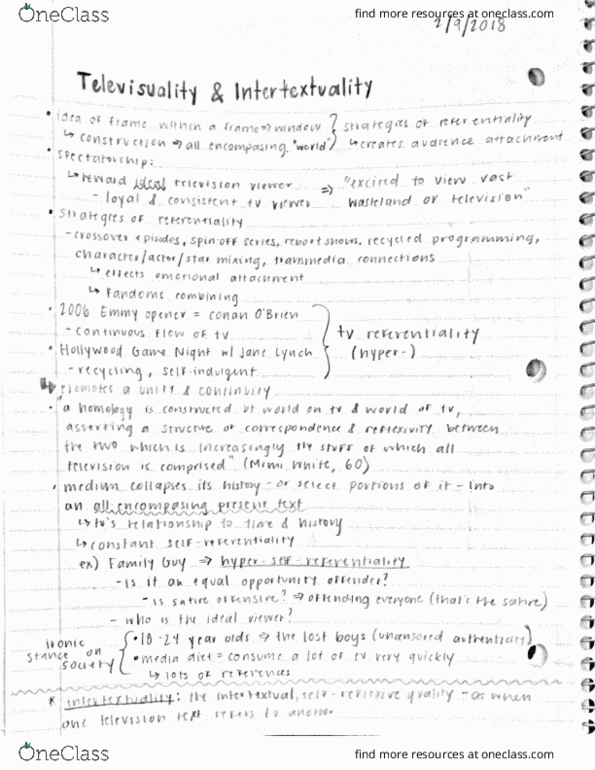 OneClass
find more resources at oneclass.com
2/9/2018
Televisuality & Intertextuality
• idea of frame within a frame ⇒ window } strategies of referentiality
↳ construction ⇒ all encompasing "world" ↳ creates audience attachment
• spectatorship:
↳ reward ideal television viewer ⇒ "excited to view vast
- loyal & consistent tv viewer wasteland of television"
• strategies of referentiality
- crossover episodes, spin off series, reboot shows, recycled programming,
character/actor/star mixing, transmedia connections
↳ effects emotional attachment
↳ fandoms combining
• 2006 Emmy opener = Conan O'Brien
- continuous flow of tv
tv referentiality
• Hollywood Game Night w/ Jane Lynch
(hyper-)
- recycling, self-indulgent
↳ promotes a unity & continuity
• "a homology is constructed bt world on tv & world of tv,
asserting a structure of correspondence & reflexivity between
the two which is increasingly the stuff of which all
television is comprised" (Mimi White, 60)
• medium collapses its history - or select portions of it - into
an all encompassing present text
↳ tv's relationship to time & history
↳ constant self-referentiality
ex) Family Guy ⇒ hyper-self-referentiality
- is it an equal opportunity offender?
- is satire offensive? ⇒ offending everyone (that's the satire)
- who is the ideal viewer?
ironic stance on society { • 18-24 year olds ⇒ the lost boys (uncensored authenticity)
• media diet = consume a lot of tv very quickly
↳ lots of references
* intertextuality: the intertextual, self-reflexive quality - as when
one television text refers to another
OneClass
find more resources at oneclass.com